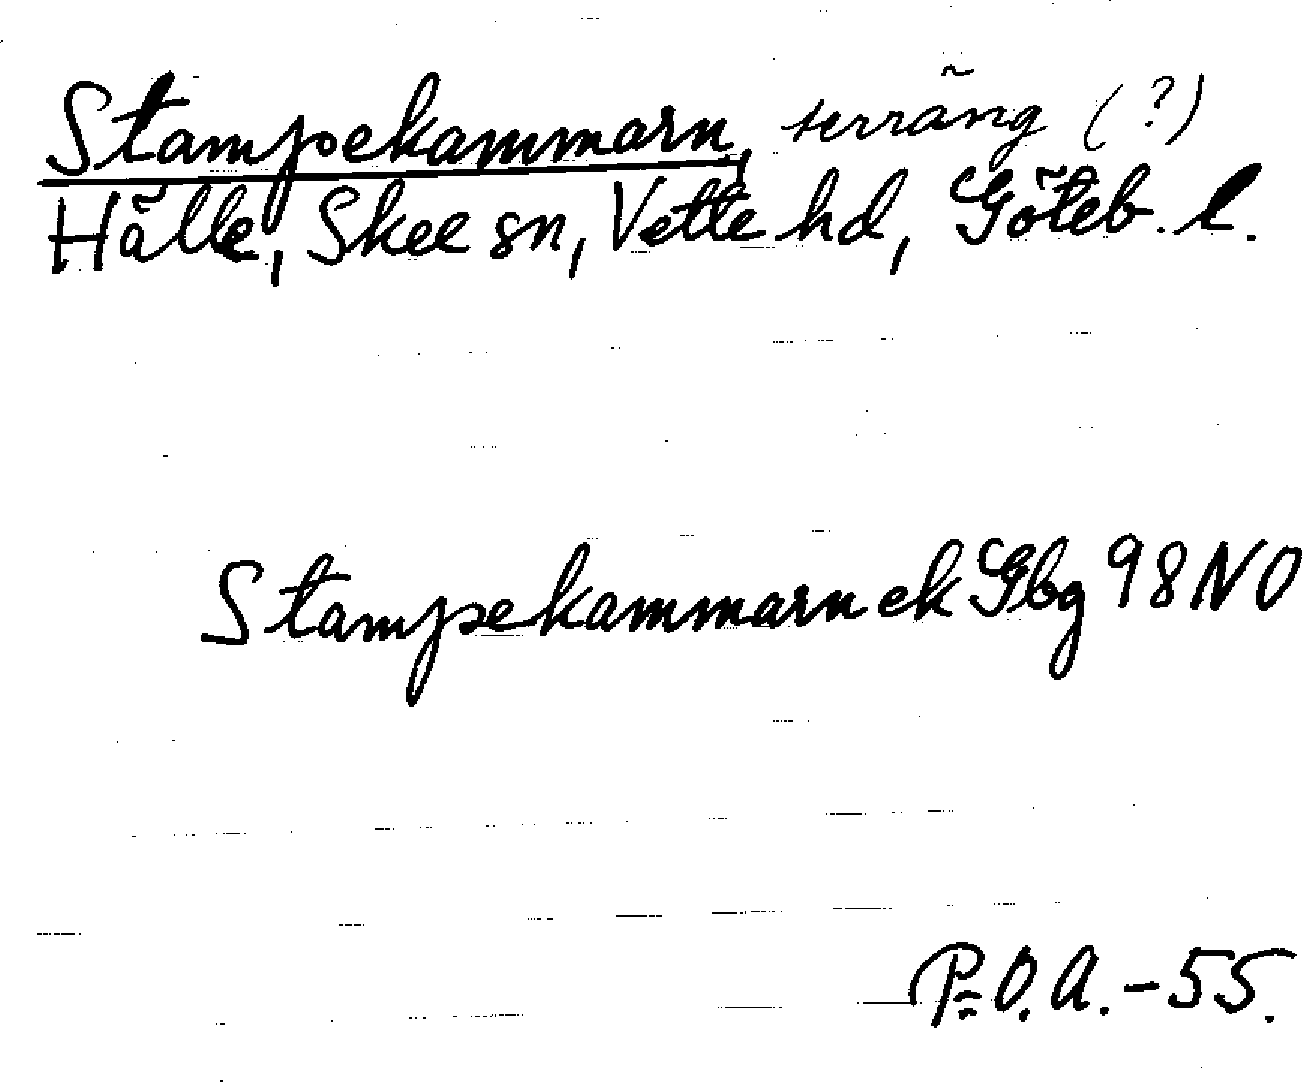 Stampekammarn, terräng (?)
Hälle, Skee sn, Vette hd, Göteb. l.
Stampekammarn ek Gbg 98 NO
P:O.A.-55.